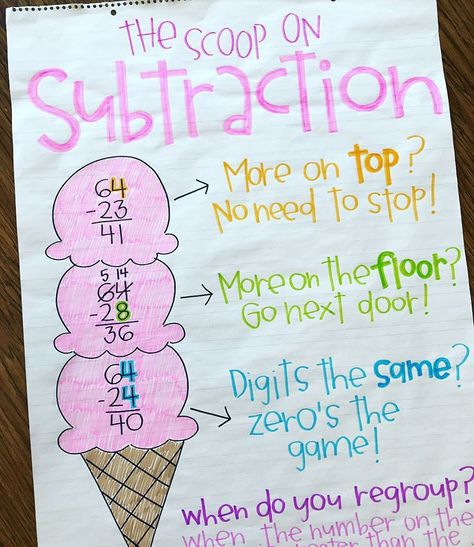 THE SCOOP ON
Subtraction
64
-23
41
More on top?
No need to stop!
5 14
64
-28
36
More on the floor?
Go next door!
64
-24
40
Digits the same?
zero's the
game!
when do you regroup?
when the number on the
than the